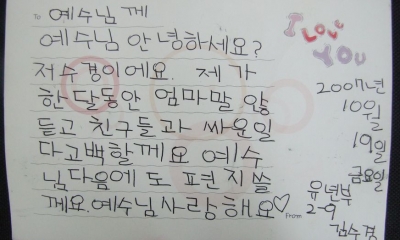 To 예수님께
예수님 안녕하세요?
저 수경이에요. 제가
한 달동안 엄마말 않
듣고 친구들과 싸운일
다고백할께요 예수
님 다음에 도 편지 쓸
께요. 예수님 사랑해요♡ From
I LOVE
YOU
2007년
10월
19일
금요일
유년부
2-9
김수경